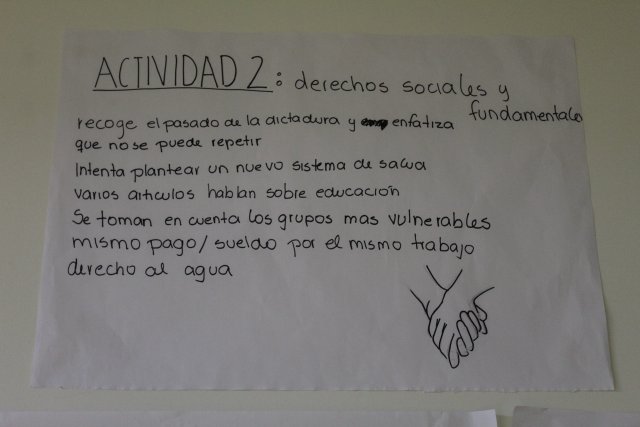 ACTIVIDAD 2: derechos sociales y
fundamentales
recoge el pasado de la dictadura y enfatiza
que no se puede repetir
Intenta plantear un nuevo sistema de salud
varios articulos hablan sobre educación
Se toman en cuenta los grupos mas vulnerables
mismo pago/sueldo por el mismo trabajo
derecho al agua